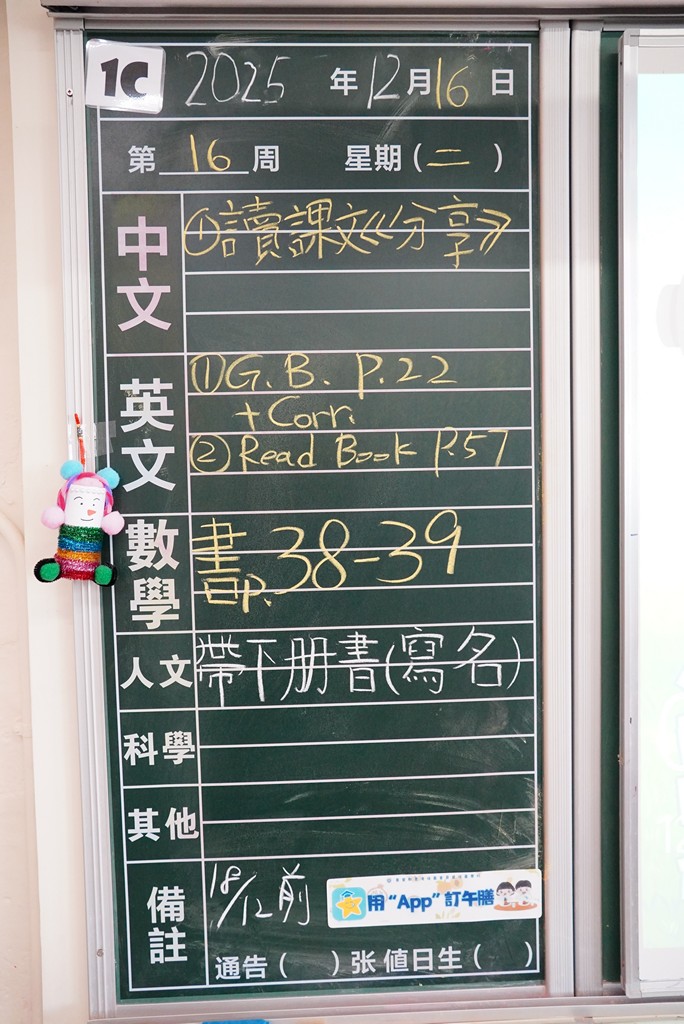 1C
2025 年 12 月 16 日
第 16 周 星期 ( 二 )
中文
①讀課文《分享》
英文
①G.B. P.22
+ Corr.
②Read Book P.57
數學
書p. 38-39
人文
帶下册書(寫名)
科學
其他
備註
18/12前
用“App”訂午膳
通告 ( ) 张 值日生 ( )